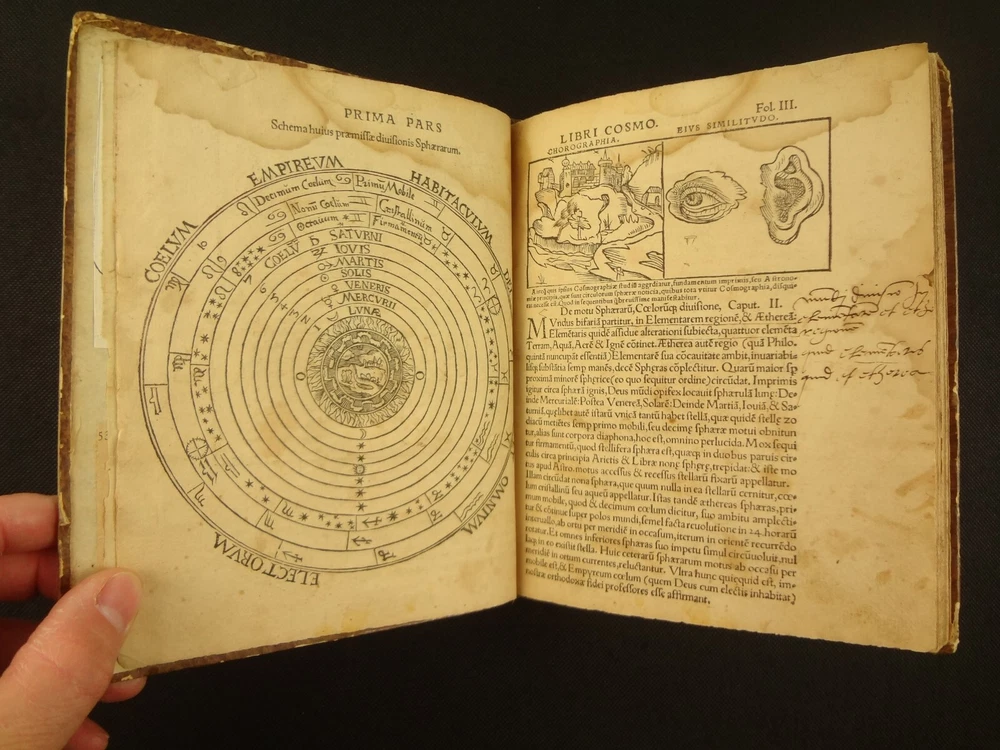 PRIMA PARS
Schema huius præmissæ diuisionis Sphærarum.
COELVM EMPIREVM HABITACVLVM
Decimum Coelum Primũ Mobile
Nonũ Coelum Cristallinum
Octauum Firmamentũ
COELV SATVRNI
IOVIS
MARTIS
SOLIS
VENERIS
MERCVRII
LVNÆ
ELECTORVM
OMNIVM
Fol. III.
LIBRI COSMO.
CHOROGRAPHIA. EIVS SIMILITVDO.
De motu Sphærarũ, Cœlorũq; diuisione, Caput. II.
MVndus bifariã partitur, in Elementarem regionẽ, & Æthereã:
Elemẽtaris quidẽ assidue alterationi subiecta, quattuor elemẽta
Terram, Aquã, Aerẽ & Ignẽ cõtinet. Ætherea autẽ regio (quã Philo-
quintã nuncupãt essentiã) Elementarẽ sua cõcauitate ambit, inuariabi-
substãtia semp manẽs, decẽ Sphęras cõplectitur. Quarũ maior sp
proximã minorẽ sphęrice (eo quo sequitur ordine) circũdat. Imprimis
igitur circa sphærã ignis, Deus mũdi opifex locauit sphærulã lunę: De-
inde Mercurialẽ: Postea Venereã, Solarẽ: Deinde Martiã, Iouiã, & Sa-
turniã, quęlibet autẽ istarũ vnicã tantũ habet stellã, quæ quidẽ stellę zo
diacũ metiẽtes semp primo mobili, seu decimę sphæræ motui obnitun
tur, alias sunt corpora diaphona, hoc est, omnino perlucida. Mox sequi
tur firmamentũ, quod stellifera sphæra est, quæq; in duobus paruis cir-
culis circa principia Arietis & Libræ nonę sphęrę, trepidat: & iste mo
tus apud Astro. motus accessus & recessus stellarũ fixarũ appellatur.
Illam circũdat nona sphæra, quę quum nulla in ea stellarũ cernitur, cœ-
lum cristallinũ seu aqueũ appellatur. Istas tandẽ æthereas sphæras, pri-
mum mobile, quod & decimum cœlum dicitur, suo ambitu amplecti-
tur & cõtinue super polos mundi, semel facta reuolutione in 24. horarũ
interuallo, ab ortu per meridiẽ in occasum, iterum in orientẽ recurrẽdo
rotatur. Et omnes inferiores sphæras suo impetu simul circũuoluit, nul
laq; in eo existit stella. Huic ceterarũ sphærarum motus ab occasu per
meridiẽ in ortum currentes, reluctantur. Vltra hunc quicquid est, im-
mobile est, & Empyreum cœlum (quem Deus cum electis inhabitat)
nostræ orthodoxæ fidei professores esse affirmant.